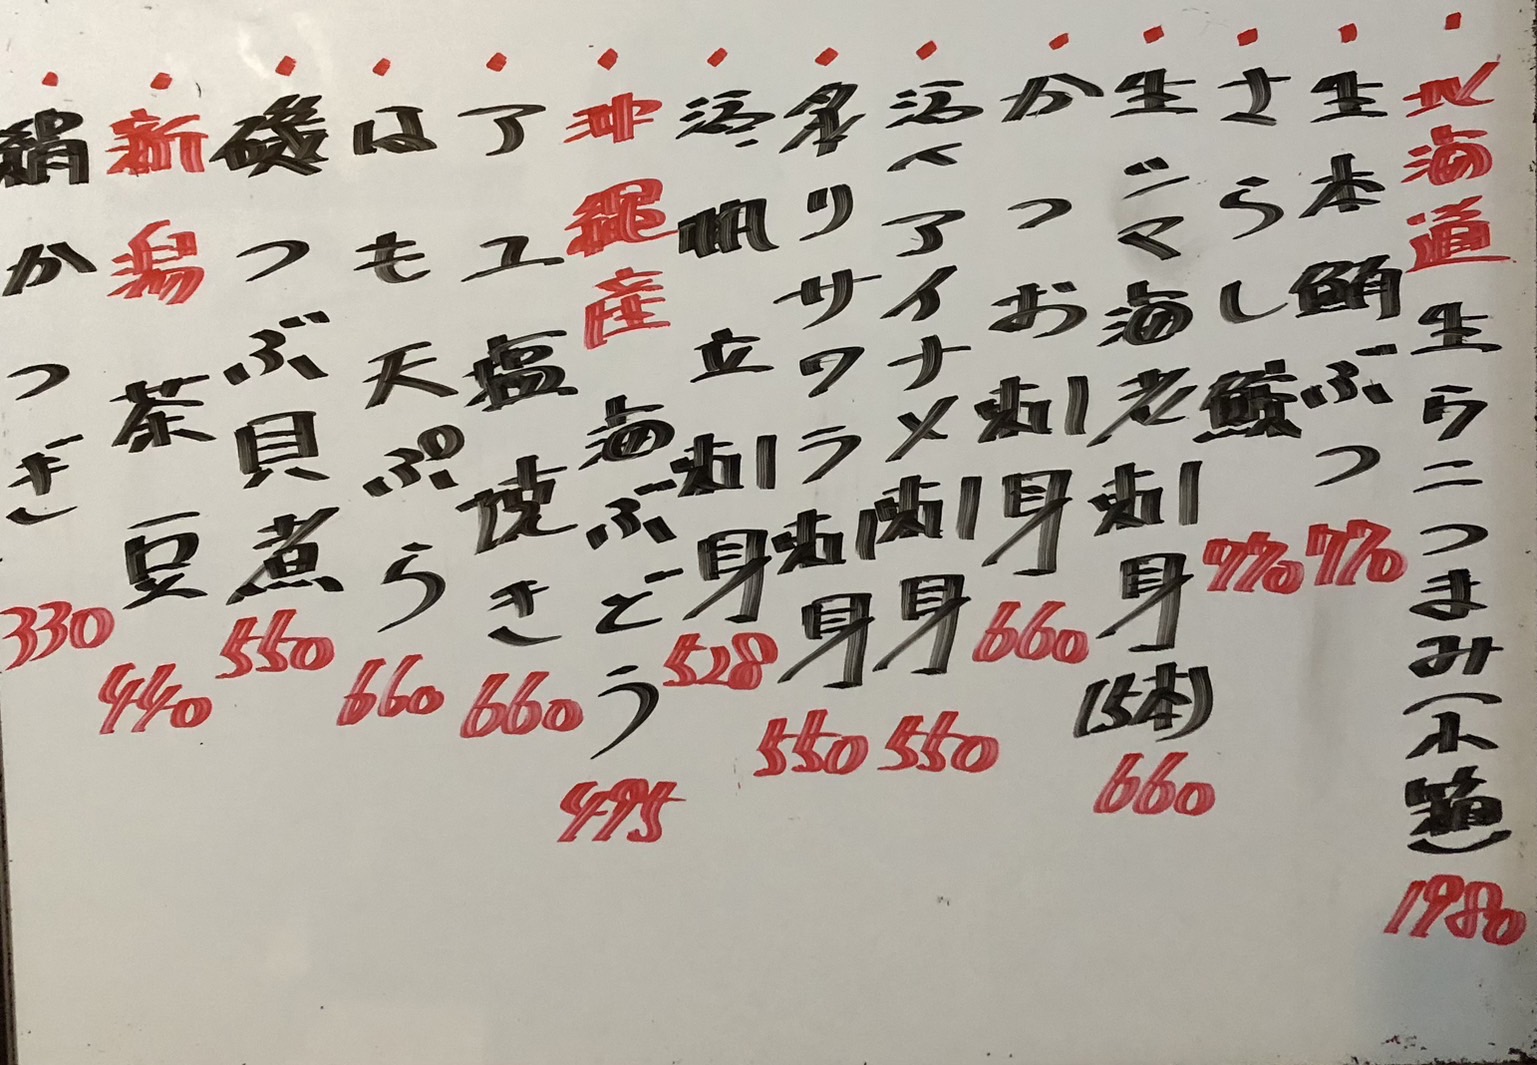 北海道生ウニつまみ(小箱)1980
生本鮪ぶつ770
さらし鯨770
生シマ海老刺身(5本)660
かつお刺身660
活〆アイナメ刺身550
炙りサワラ刺身550
活帆立刺身528
沖縄産海ぶどう495
アユ塩焼き660
はも天ぷら660
磯つぶ貝煮550
新潟茶豆440
絹かつぎ330